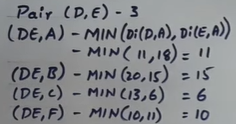 Pair (D,E) - 3
(DE,A) - MIN(Di(D,A), Di(E,A))
- MIN (11,18) = 11
(DE,B) - MIN(20,15) = 15
(DE,C) - MIN(13,6) = 6
(DE,F) - MIN(10,11) = 10